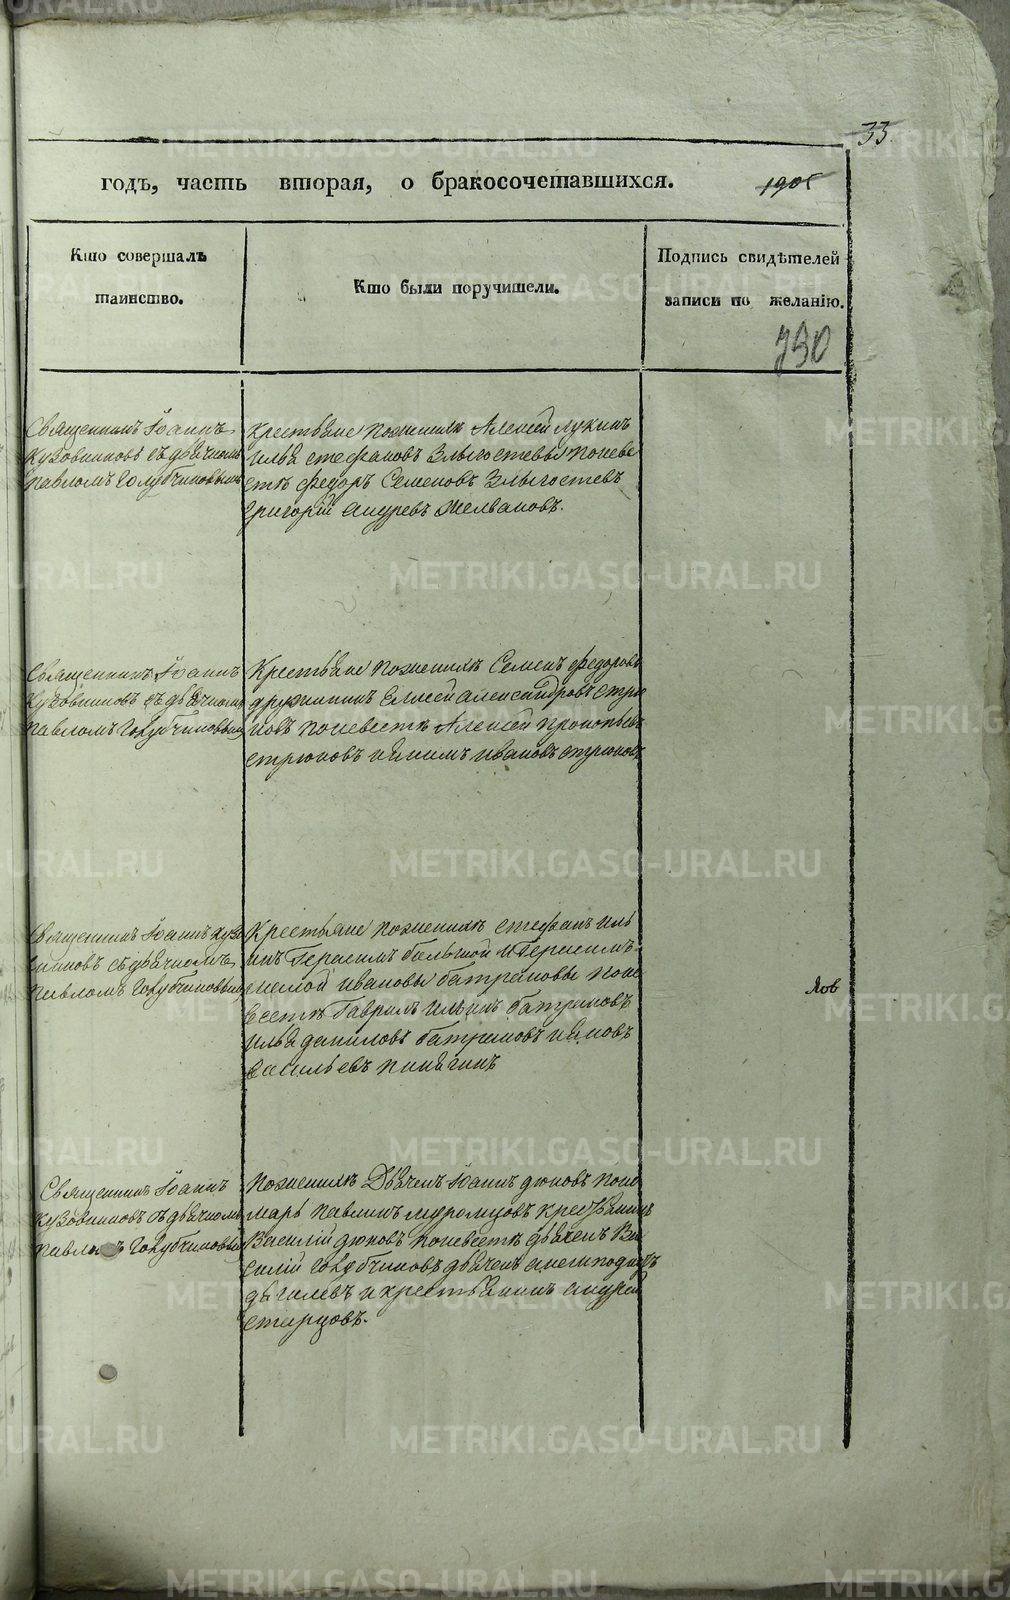 33
годъ, часть вторая, о бракосочетавшихся.
1905
Кто совершалъ
таинство.
Кто были поручители.
Подпись свидѣтелей
записи по желанію.
790
Священникъ Іоаннъ
Кузовниковъ съ дьячкомъ
Павломъ Голубчиковымъ
Крестьяне по женихѣ Алексей Лукинъ
Илья Стефановъ Злыгостевы по неве
стѣ Федоръ Семеновъ Злыгостевъ
Григорій Андреевъ Желваковъ.
Священникъ Іоаннъ
Кузовниковъ съ дьячкомъ
Павломъ Голубчиковымъ
Крестьяне по женихѣ Семенъ Федоровъ
Дружининъ Елисей Александровъ Стрю
ковъ по невестѣ Алексей Прокопьевъ
Стрюковъ и Екимъ Ивановъ Стрюковъ
Священникъ Іоаннъ Кузо
вниковъ съ дьячкомъ
Павломъ Голубчиковымъ
Крестьяне по женихѣ Стефанъ Иль
инъ Герасимъ большой и Герасимъ
малой Ивановы Батраковы по не
вестѣ Гаврилъ Ильинъ Батраковъ
Илья Даниловъ Батраковъ
Васильевъ Пинягинъ
Яов
Священникъ Іоаннъ
Кузовниковъ съ дьячкомъ
Павломъ Голубчиковымъ
По женихѣ Дьячекъ Іоаннъ Дюковъ поно
марь Павлинъ Муромцовъ крестьянинъ
Василій Дюковъ по невестѣ дьячекъ Ва
силій Голубчиковъ дьячекъ Анемподистъ
Дягилевъ и крестьянинъ Андрей
Старцовъ.
METRIKI.GASO-URAL.RU